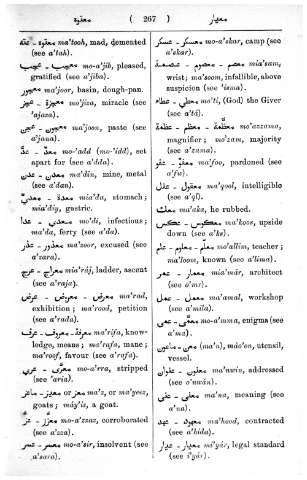 معتوه ( 267 ) معيار
معتوه - عته ma'tooh, mad, demented
(see a'tah).
معجب - عجيب mo-a'jib, pleased,
gratified (see a'jiba).
معجور ma'joor, basin, dough-pan.
معجزة - عجز mo'jiza, miracle (see
'ajaza).
معجون - عجن ma'joon, paste (see
a'jana).
معدّ - عدّ mo-'add (mo-'idd), set
apart for (see a'dda).
معدن - عدن ma'din, mine, metal
(see a'dan).
معدة - معدي mia'da, stomach;
mia'diy, gastric.
معدي - عدا mo'di, infectious;
ma'da, ferry (see a'da).
معذور - عذر ma'zoor, excused (see
a'zara).
معراج - عرج mia'ráj, ladder, ascent
(see a'raja).
معرض - معروض - عرض ma'rad,
exhibition; ma'rood, petition
(see a'rada).
معرفة - معروف - عرف ma'rifa, know-
ledge, means; ma'rafa, mane;
ma'roof, favour (see a'rafa).
معرّى - عري mo-a'rra, stripped
(see 'aria).
معز or معيز - ماعز ma'z, or ma'yeez,
goats; máy'iz, a goat.
معزّز - عزّ mo-a'zzaz, corroborated
(see a'zza).
معسر - عسر mo-a'sir, insolvent (see
a'sara).
معسكر - عسكر mo-a'skar, camp (see
a'skar).
معصم - معصوم - عصمة mia'sam,
wrist; ma'soom, infallible, above
suspicion (see 'isma).
معطي - عطاء mo'ti, (God) the Giver
(see a'tá).
معظّمة - معظم - عظمة mo'azzama,
magnifier; mo'zam, majority
(see a'zama).
معفو - عفو ma'foo, pardoned (see
a'fw).
معقول - عقل ma'qool, intelligible
(see a'ql).
معك ma'ka, he rubbed.
معكوس - عكس ma'koos, upside
down (see a'ks).
معلّم - معلوم - علم mo'allim, teacher;
ma'loom, known (see a'lima).
معمار - عمر mia'már, architect
(see a'mr).
معمل - عمل ma'amal, workshop
(see a'mila).
معمّى - عمي mo-a'mma, enigma (see
a'ma).
معن - ماعون (ma'n), máo'on, utensil,
vessel.
معنون - عنوان ma'nwin, addressed
(see o'nwán).
معنى - عنى ma'na, meaning (see
a'na).
معهود - عهد ma'hood, contracted
(see a'hida).
معيار - عيار mi'yár, legal standard
(see i'yár).